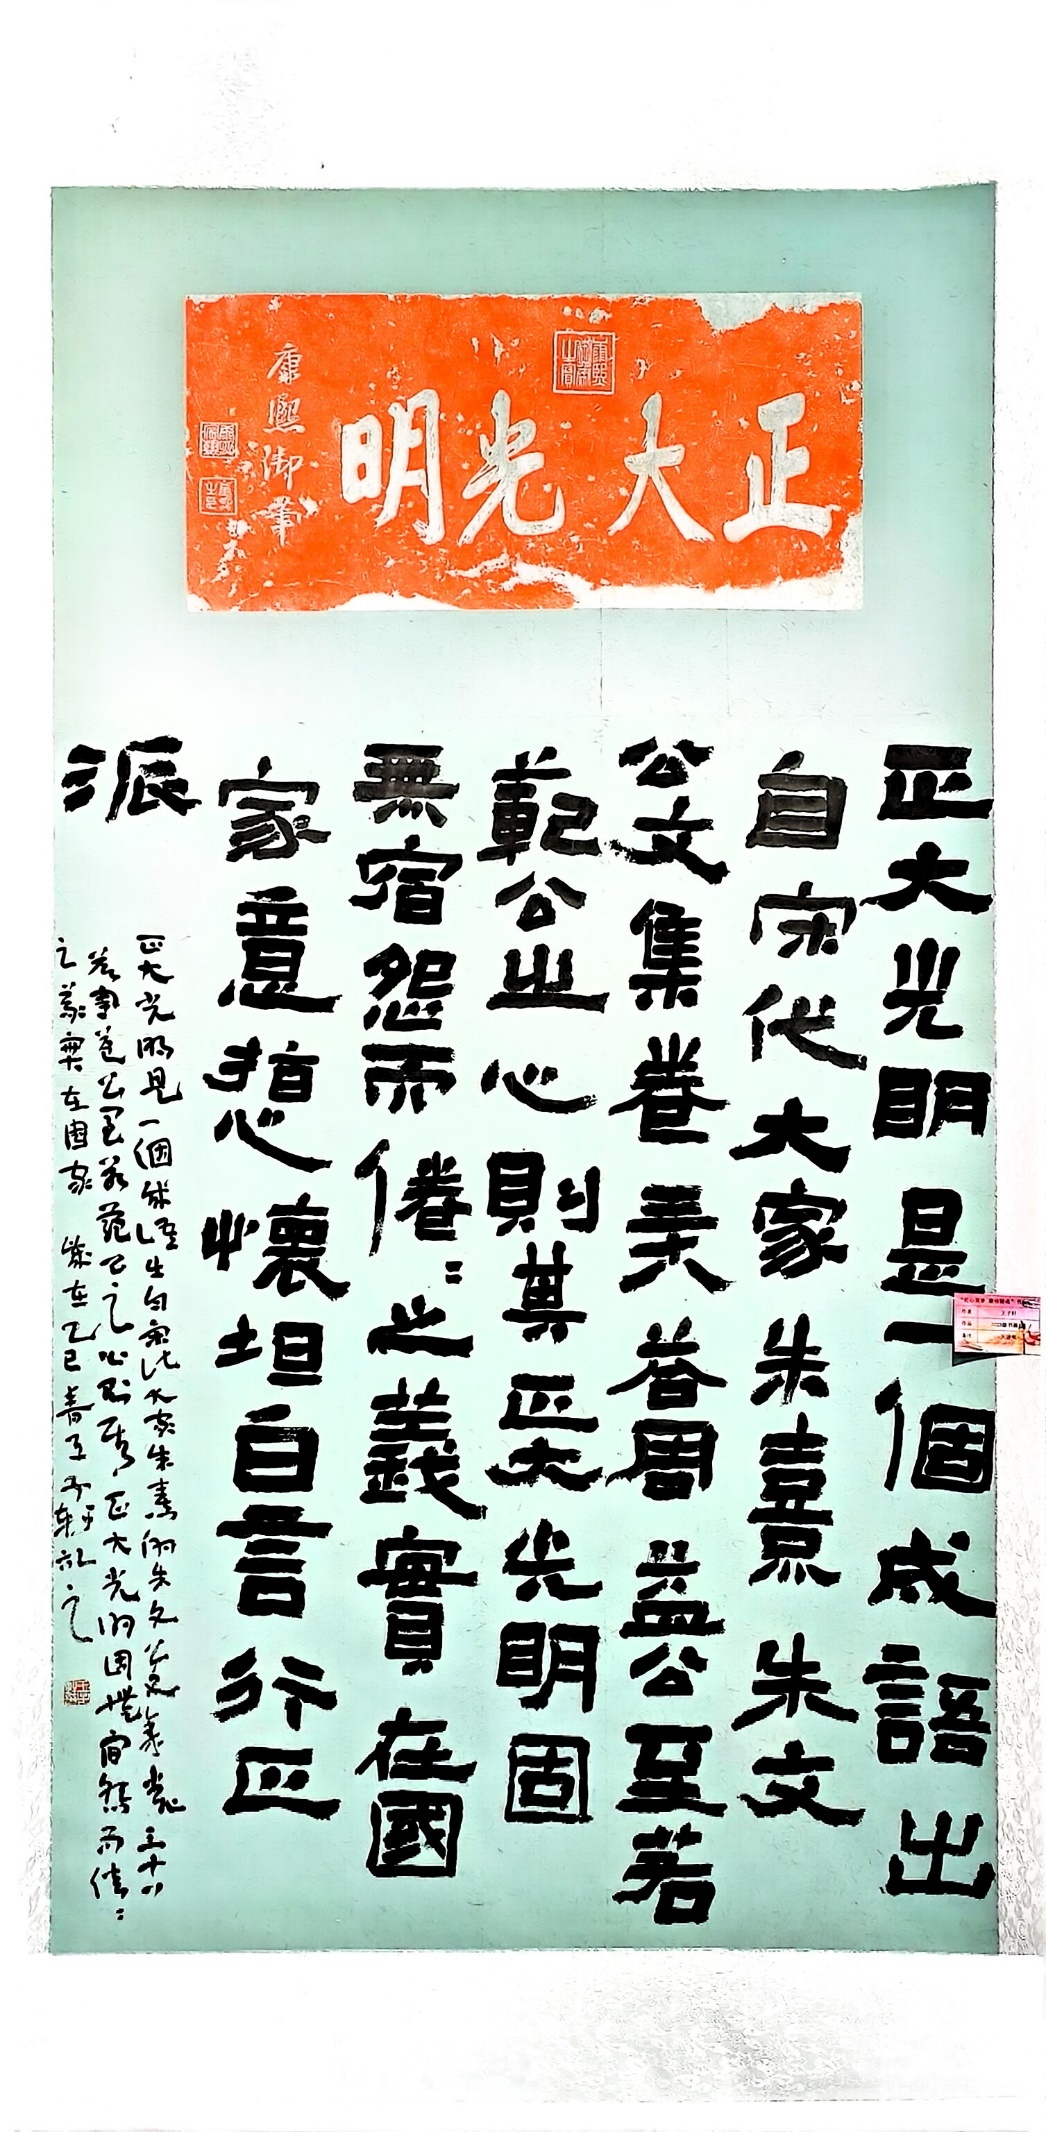 正大光明
康熙御筆
正大光明是一個成語出
自宋代大家朱熹朱文
公文集卷三十八答周益公至若
範公之心則其正大光明固
無宿怨而倦〻之義實在國
家意指心懷坦白言行正
派
正大光明是一個成語出自宋代大家朱熹的朱文公文集卷三十八
答周益公至若範公之心則其正大光明固無宿怨而倦〻
之義實在國家 歲在乙巳春王子軒